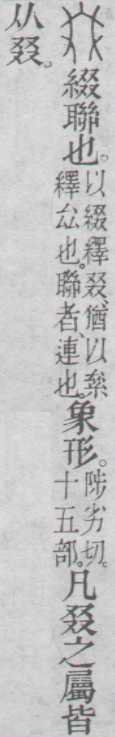 叕綴聯也。以綴釋叕、猶以絫釋厽也。聯者、連也。象形。陟劣切。十五部。凡叕之屬皆
从叕。